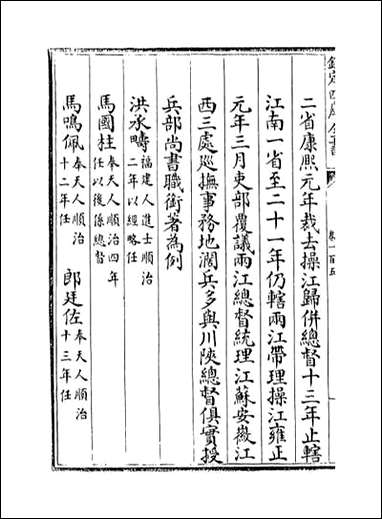 欽定四庫全書
卷一百五
二省康熙元年裁去操江歸併總督十三年止轄
江南一省至二十一年仍轄兩江帶理操江雍正
元年三月吏部覆議兩江總督統理江蘇安徽江
西三處巡撫事務地濶兵多與川陝總督俱實授
兵部尚書職銜著為例
洪承疇福建人進士順治二年以經略任
馬國柱奉天人順治四年任以後係總督
馬鳴佩奉天人順治十二年任 郎廷佐奉天人順治十三年任